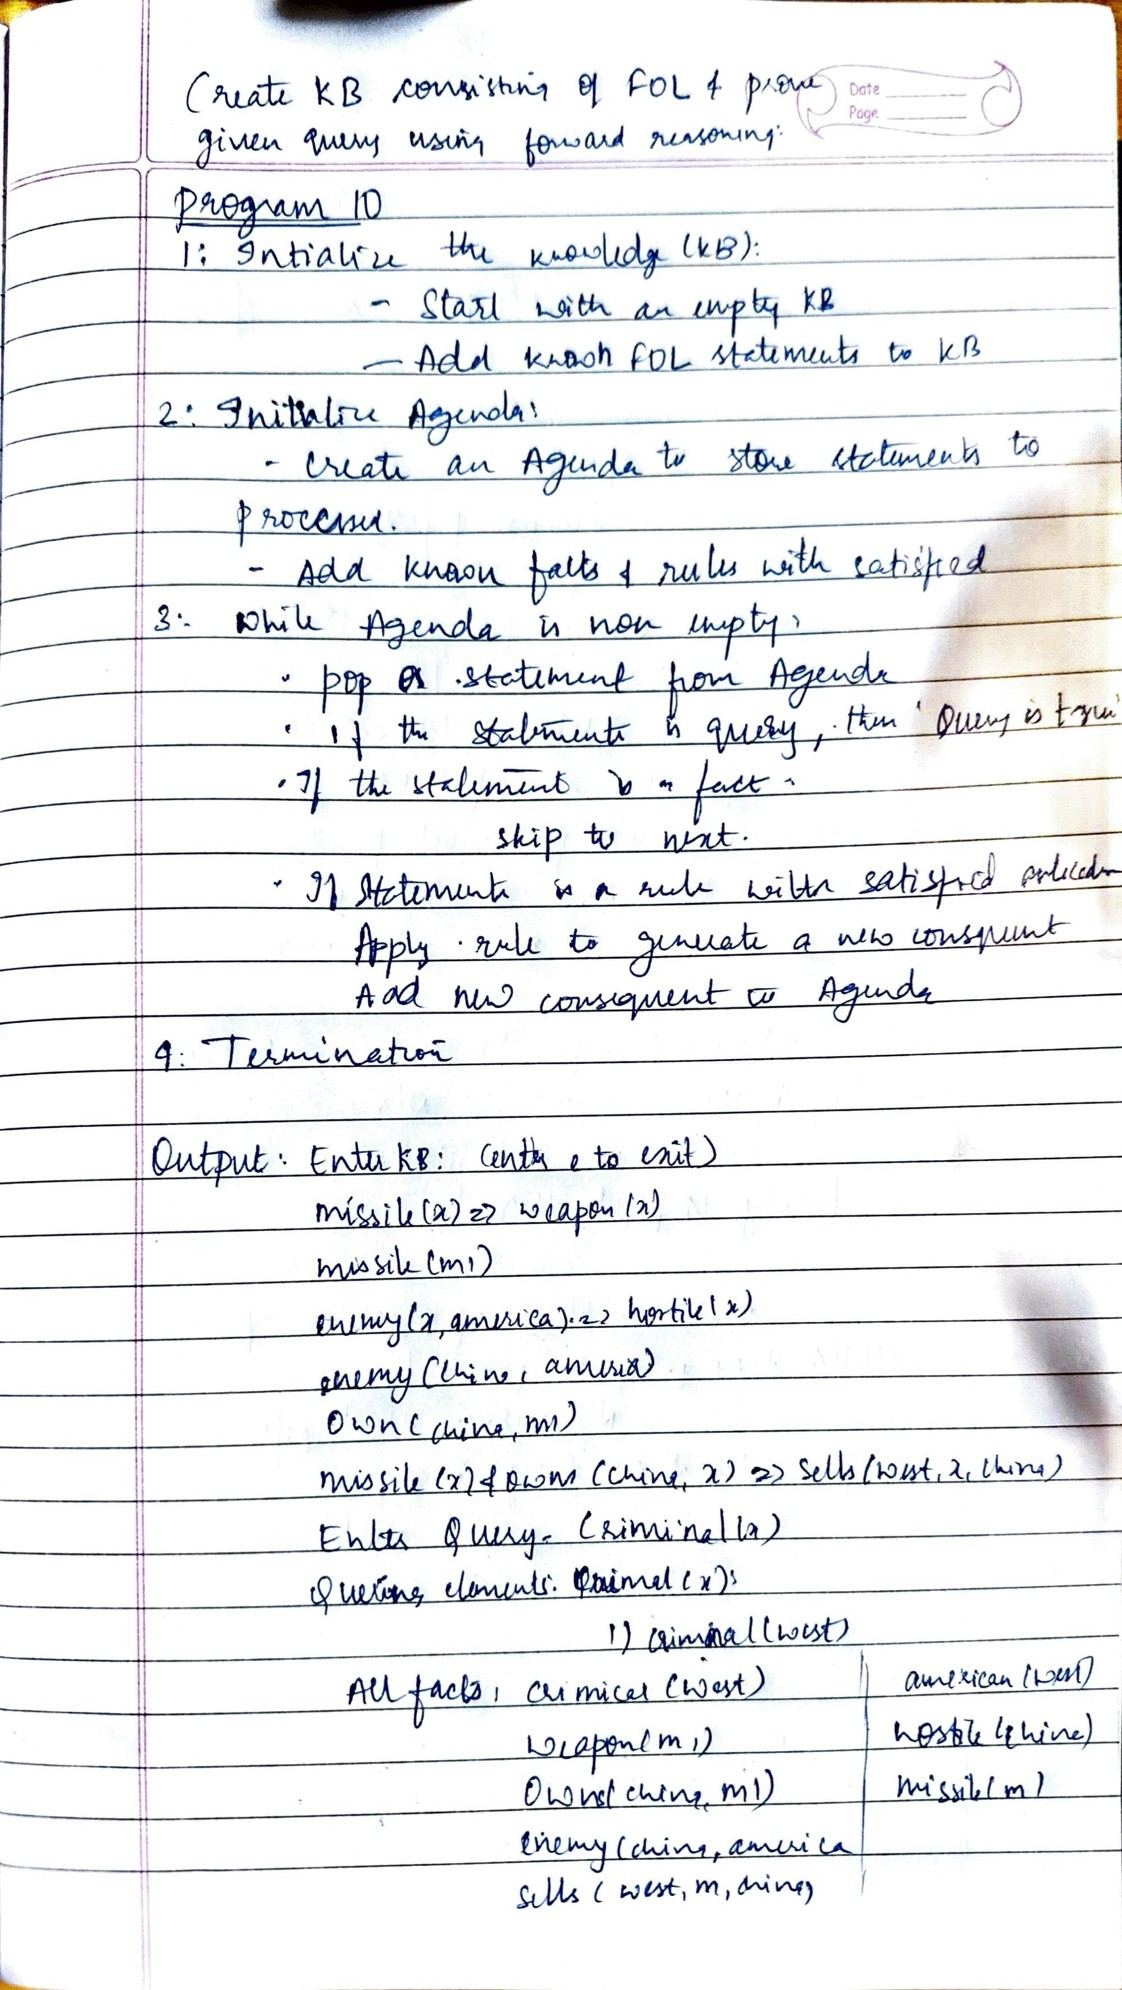 Create KB consisting of FOL & prove
given query using forward reasoning:
Date
Page
Program 10
1: Intialize the knowledge (KB):
- Start with an empty KB
- Add known FOL statements to KB
2: Initialize Agenda:
- Create an Agenda to store statements to
processed.
- Add known facts & rules with satisfied
3: While Agenda is non empty:
• pop a statement from Agenda
• If the statements is query, then 'Query is true'
• If the statement is a fact:
skip to next.
• If statement is a rule with satisfied
Apply rule to generate a new consquent
Add new consequent to Agenda
4: Termination
Output: Enter KB: (enter e to exit)
missile(x) => weapon(x)
missile(m1)
enemy(x, america) => hostile(x)
enemy(china, america)
Own(china, m1)
missile(x) & Owns(china, x) => sells(west, x, china)
Enter Query- Criminal(x)
Quering elements: Criminal(x):
1) criminal(west)
All facts: criminal (west) american (west)
weapon(m1) hostile (china)
Owns(china, m1) missile(m)
enemy(china, america
sells (west, m, china)